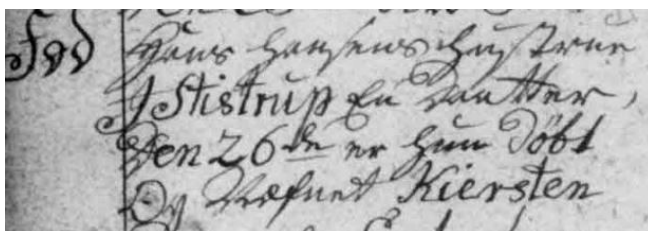 Fød Hans Hansens Hustrue
I Stistrup En Daatter,
Den 26de er hun Døbt
Og Næfnet Kiersten